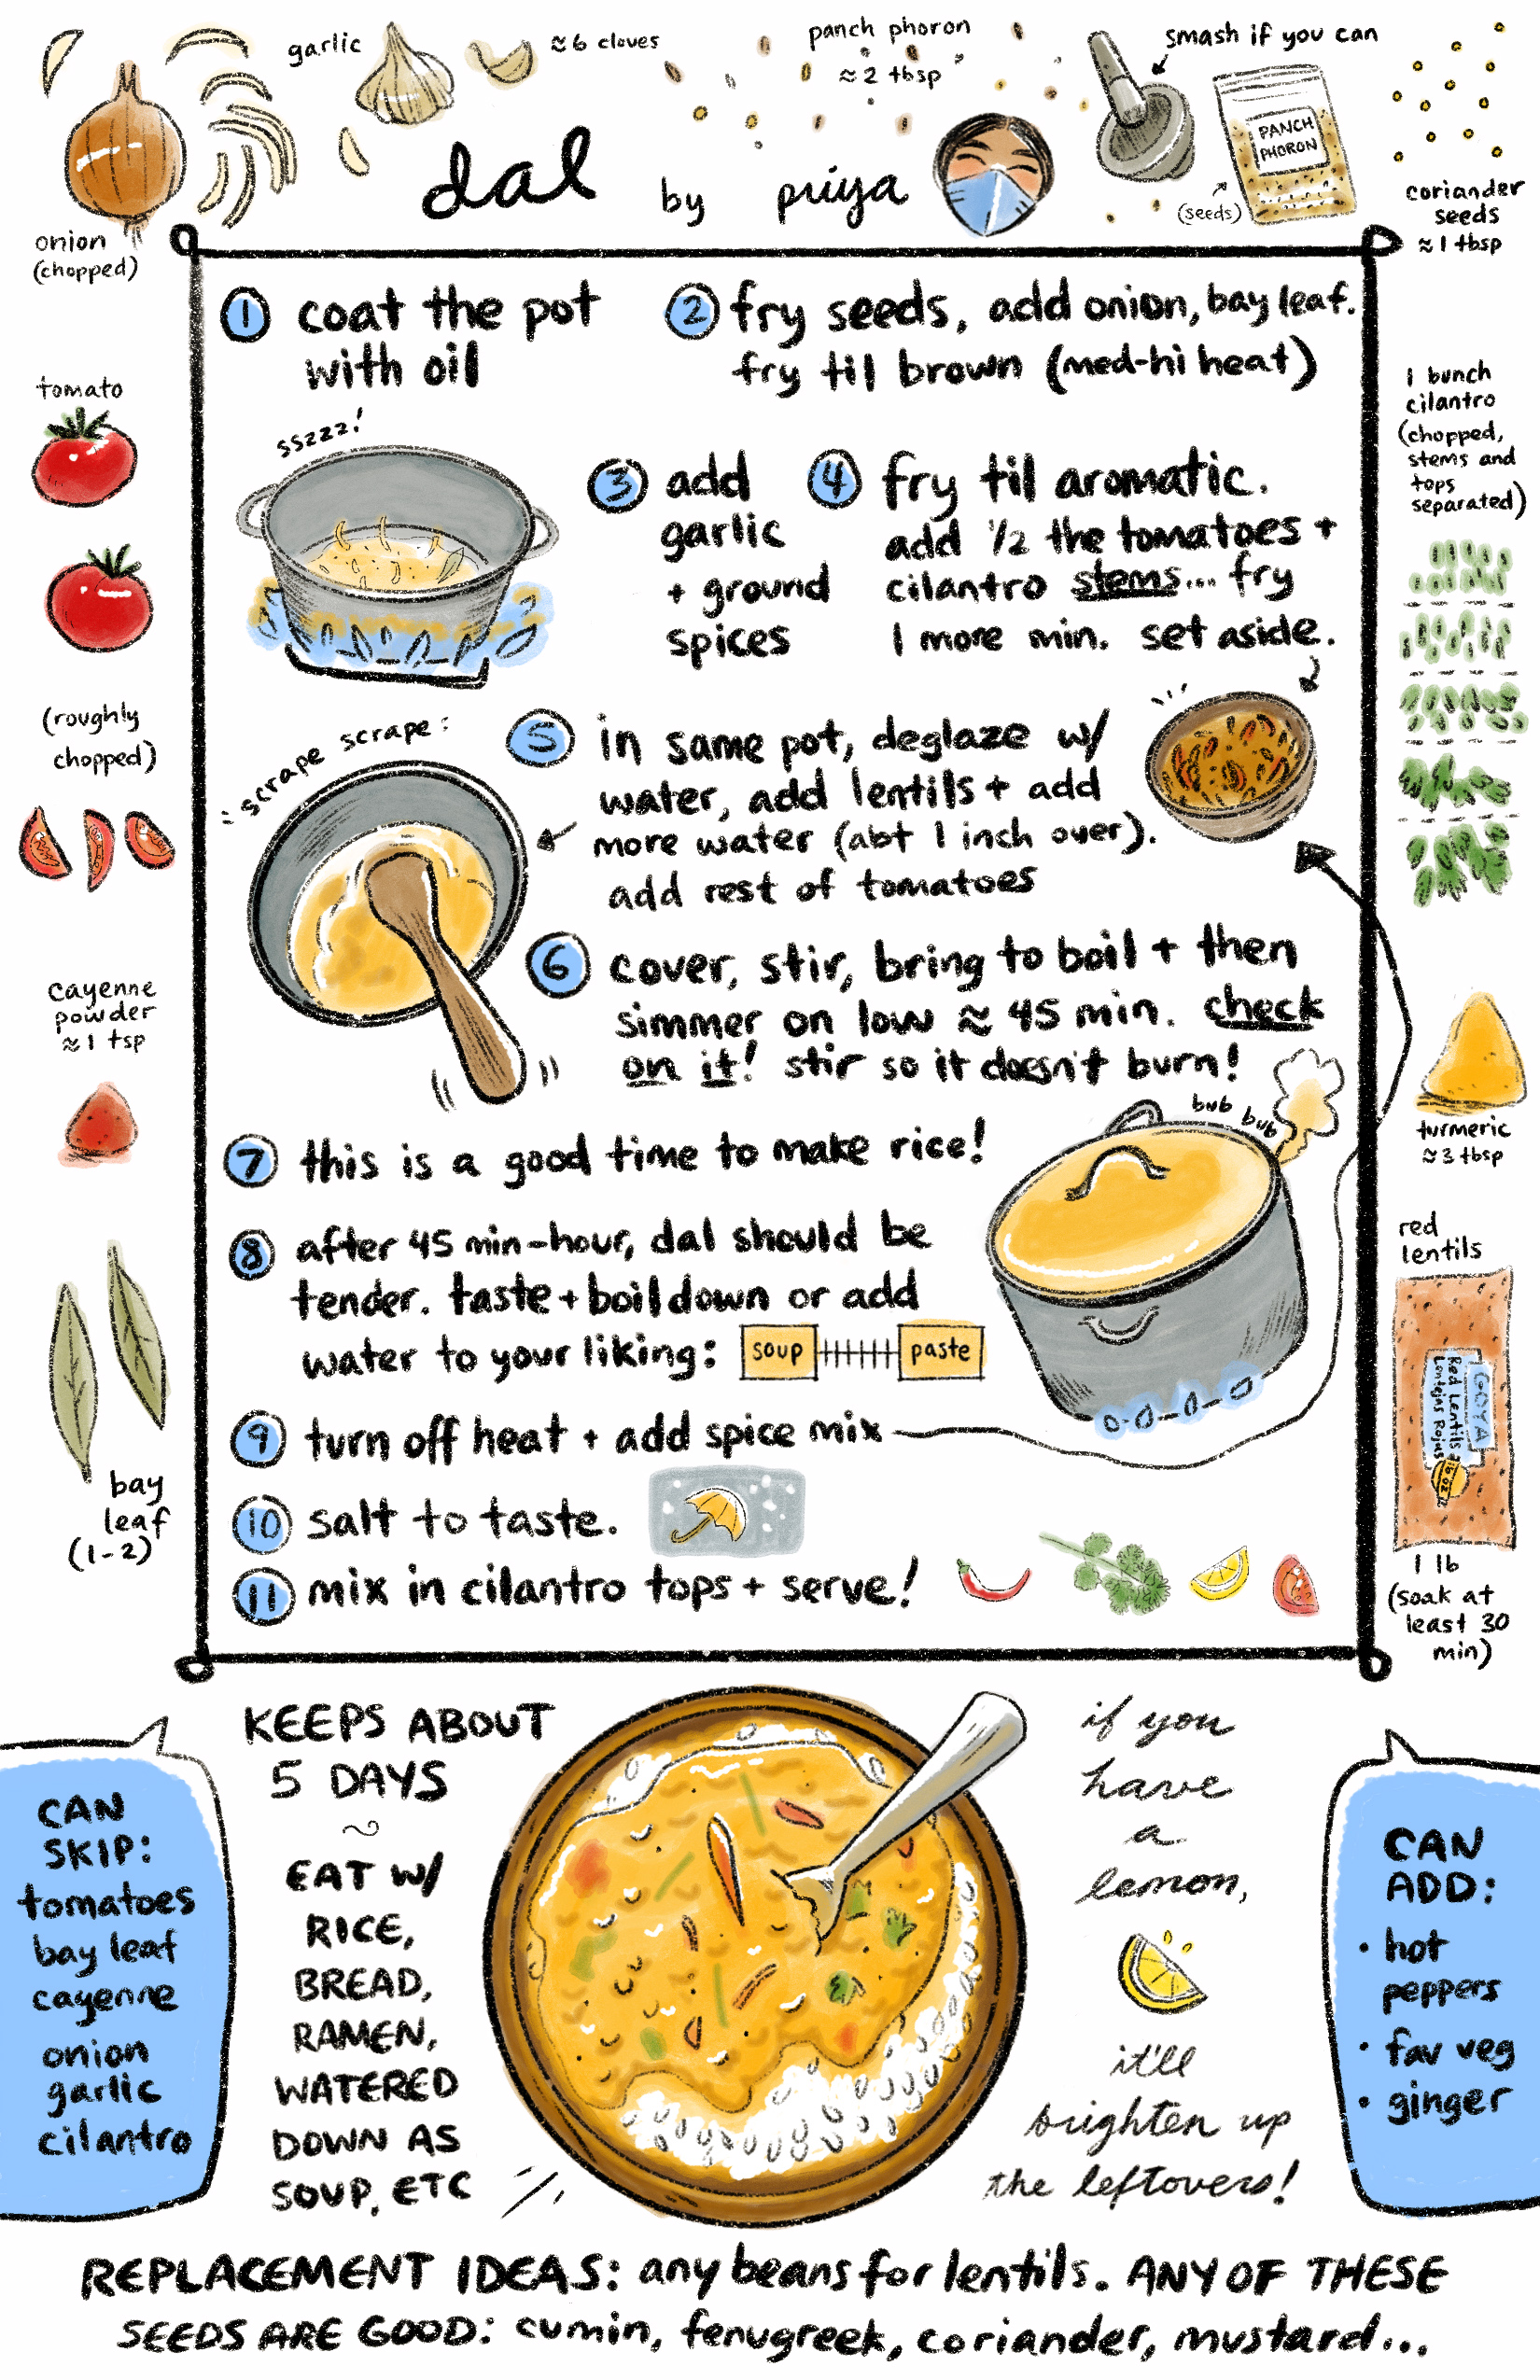 garlic
≈ 6 cloves
panch phoron
≈ 2 tbsp
smash if you can
PANCH
PHORON
(seeds)
dal by priya
onion
(chopped)
coriander
seeds
≈ 1 tbsp
tomato
(roughly
chopped)
cayenne
powder
≈ 1 tsp
bay
leaf
(1-2)
1 coat the pot
with oil
2 fry seeds, add onion, bay leaf.
fry til brown (med-hi heat)
sszzz!
3 add
garlic
+ ground
spices
4 fry til aromatic.
add 1/2 the tomatoes +
cilantro stems... fry
1 more min. set aside.
scrape scrape
5 in same pot, deglaze w/
water, add lentils + add
more water (abt 1 inch over).
add rest of tomatoes
6 cover, stir, bring to boil + then
simmer on low ≈ 45 min. check
on it! stir so it doesn't burn!
bub bub
7 this is a good time to make rice!
8 after 45 min-hour, dal should be
tender. taste + boil down or add
water to your liking: soup paste
9 turn off heat + add spice mix
10 salt to taste.
11 mix in cilantro tops + serve!
1 bunch
cilantro
(chopped,
stems and
tops
separated)
turmeric
≈ 3 tbsp
red
lentils
GOYA
Red Lentils
Lentejas Rojas
16 oz
1 lb
(soak at
least 30
min)
CAN
SKIP:
tomatoes
bay leaf
cayenne
onion
garlic
cilantro
KEEPS ABOUT
5 DAYS
~
EAT W/
RICE,
BREAD,
RAMEN,
WATERED
DOWN AS
SOUP, ETC
if you
have
a
lemon,
it'll
brighten up
the leftovers!
CAN
ADD:
• hot
peppers
• fav veg
• ginger
REPLACEMENT IDEAS: any beans for lentils. ANY OF THESE
SEEDS ARE GOOD: cumin, fenugreek, coriander, mustard...